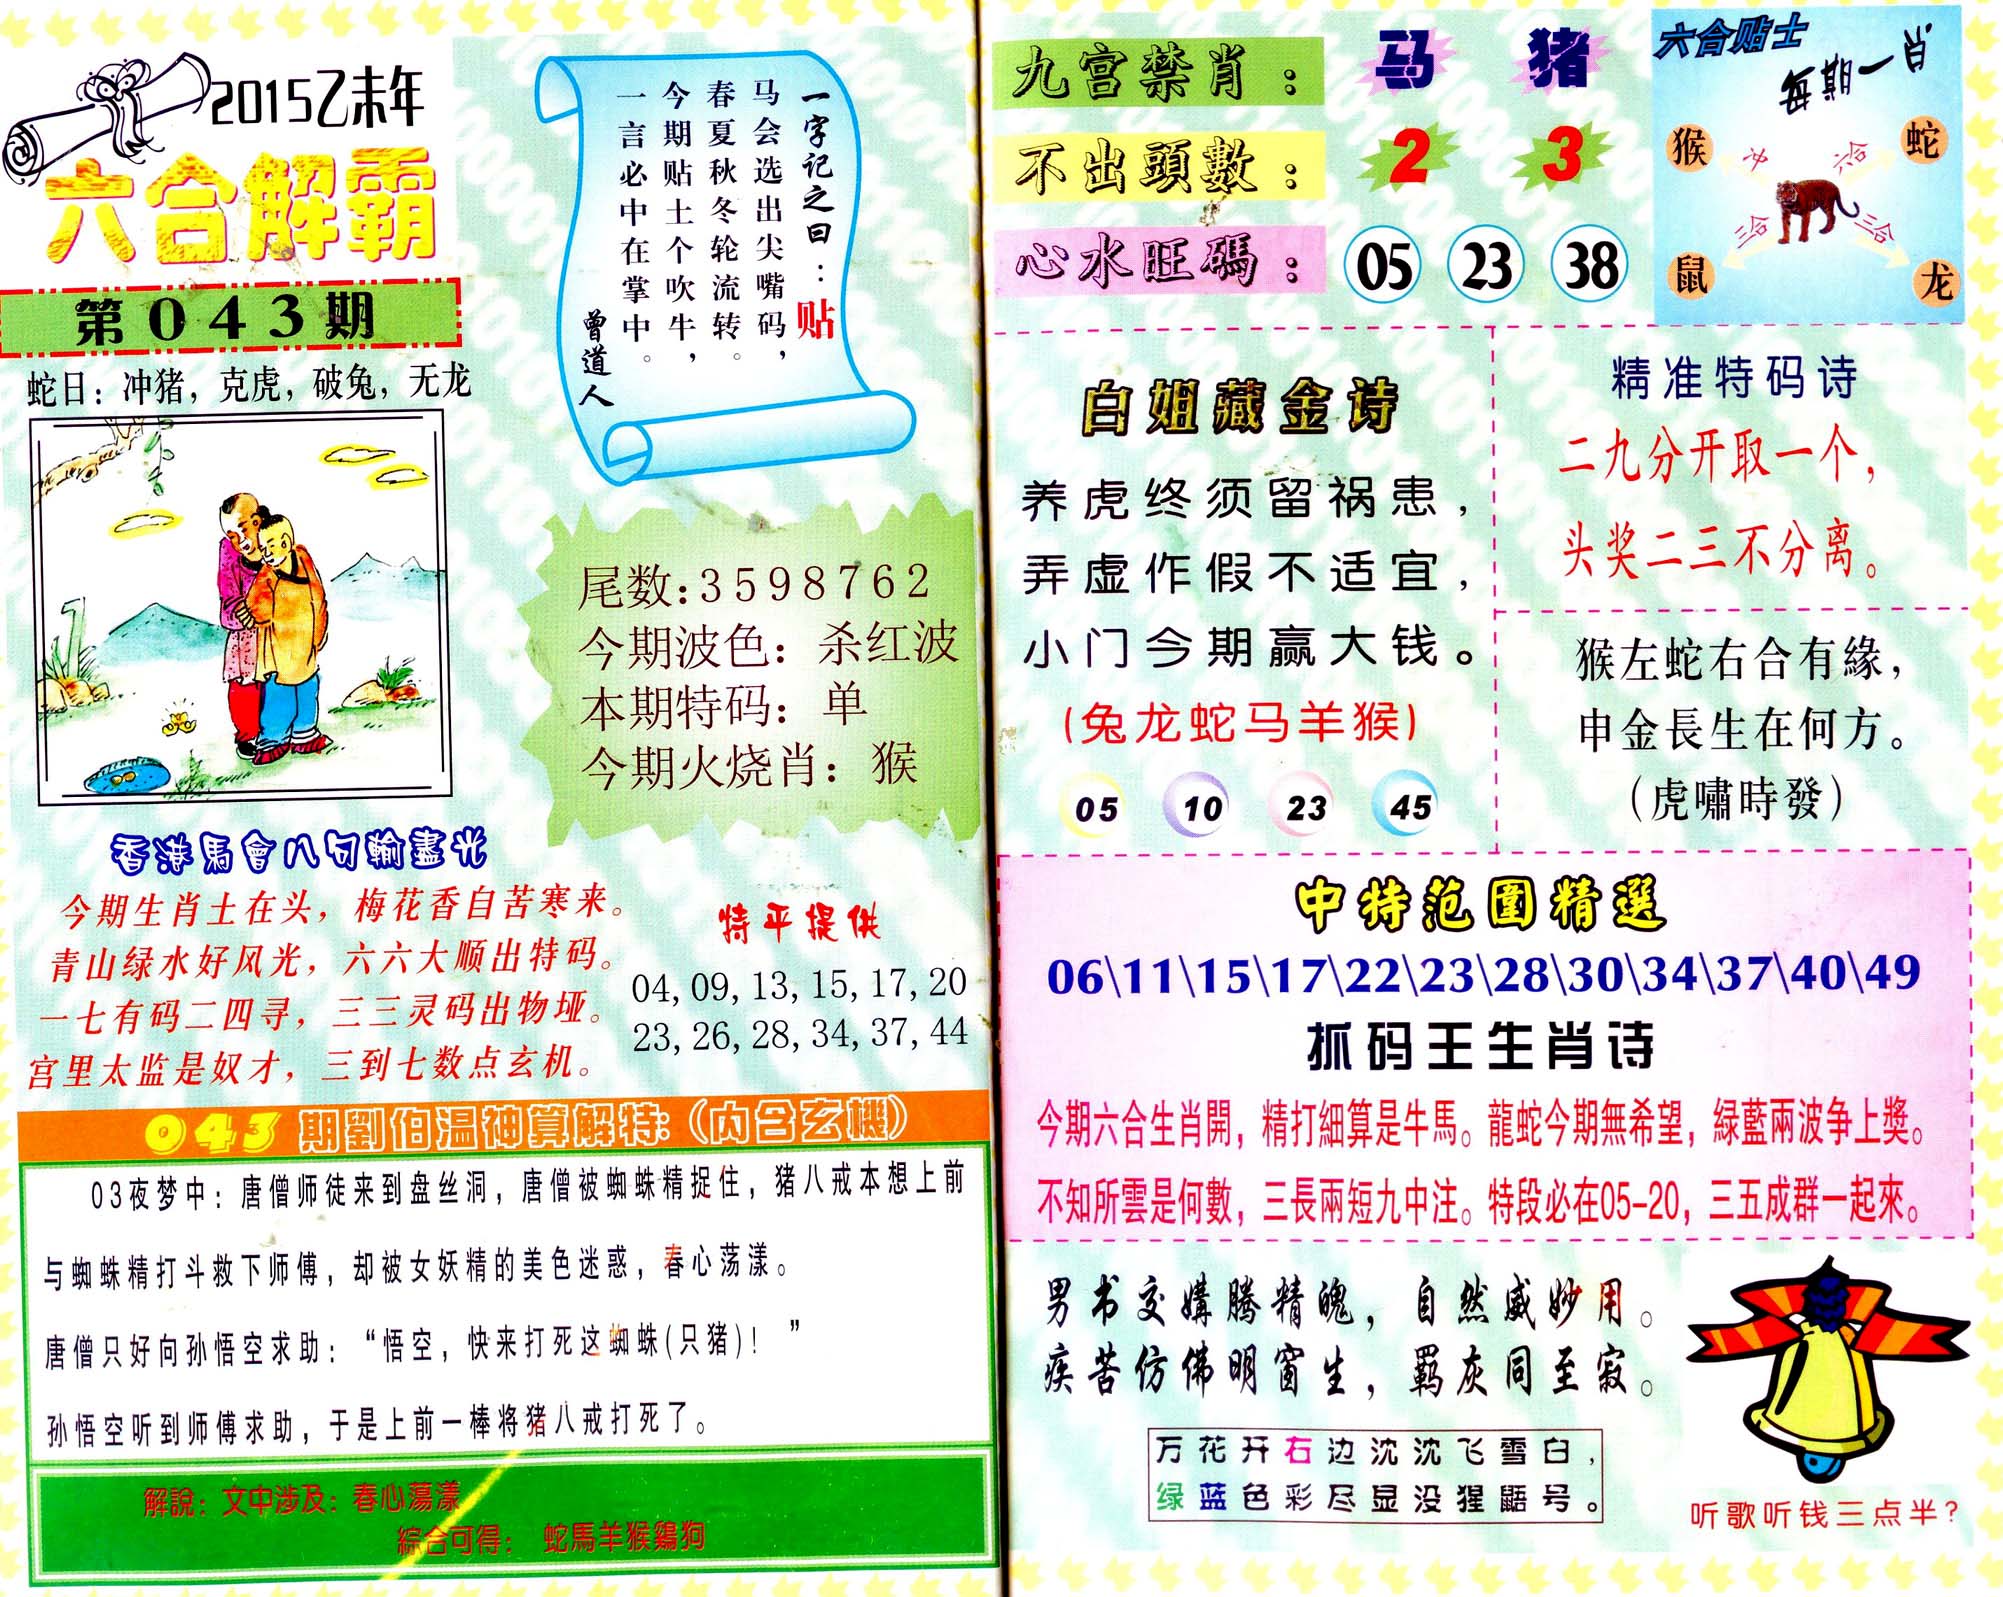 2015乙未年
六合解霸
第043期
蛇日：冲猪，克虎，破兔，无龙
一字记之曰：贴
马会选出尖嘴码，
春夏秋冬轮流转。
今期贴士个吹牛，
一言必中在掌中。
曾道人
尾数:3598762
今期波色：杀红波
本期特码：单
今期火烧肖：猴
香港馬會八句輸盡光
今期生肖土在头，梅花香自苦寒来。
青山绿水好风光，六六大顺出特码。
一七有码二四寻，三三灵码出物垭。
宫里太监是奴才，三到七数点玄机。
特平提供
04,09,13,15,17,20
23,26,28,34,37,44
043期劉伯温神算解特:(内含玄機)
03夜梦中：唐僧师徒来到盘丝洞，唐僧被蜘蛛精捉住，猪八戒本想上前
与蜘蛛精打斗救下师傅，却被女妖精的美色迷惑，春心荡漾。
唐僧只好向孙悟空求助：“悟空，快来打死这蜘蛛(只猪)！”
孙悟空听到师傅求助，于是上前一棒将猪八戒打死了。
解說：文中涉及：春心蕩漾
綜合可得： 蛇馬羊猴鷄狗
九宫禁肖： 马 猪
不出頭數： 2 3
心水旺碼： 05 23 38
六合贴士
每期一肖
猴 冲 六合 蛇
鼠 三合 三合 龙
白姐藏金诗
养虎终须留祸患，
弄虚作假不适宜，
小门今期赢大钱。
(兔龙蛇马羊猴)
05 10 23 45
精准特码诗
二九分开取一个，
头奖二三不分离。
猴左蛇右合有緣，
申金長生在何方。
(虎嘯時發)
中特范圍精選
06\11\15\17\22\23\28\30\34\37\40\49
抓码王生肖诗
今期六合生肖開，精打細算是牛馬。龍蛇今期無希望，緑藍兩波争上獎。
不知所雲是何數，三長兩短九中注。特段必在05-20，三五成群一起來。
男书交媾腾精魄，自然威妙用。
疾苦仿佛明窗生，羁灰同至寂。
万花开右边沈沈飞雪白，
绿蓝色彩尽显没猩鼯号。
听歌听钱三点半？